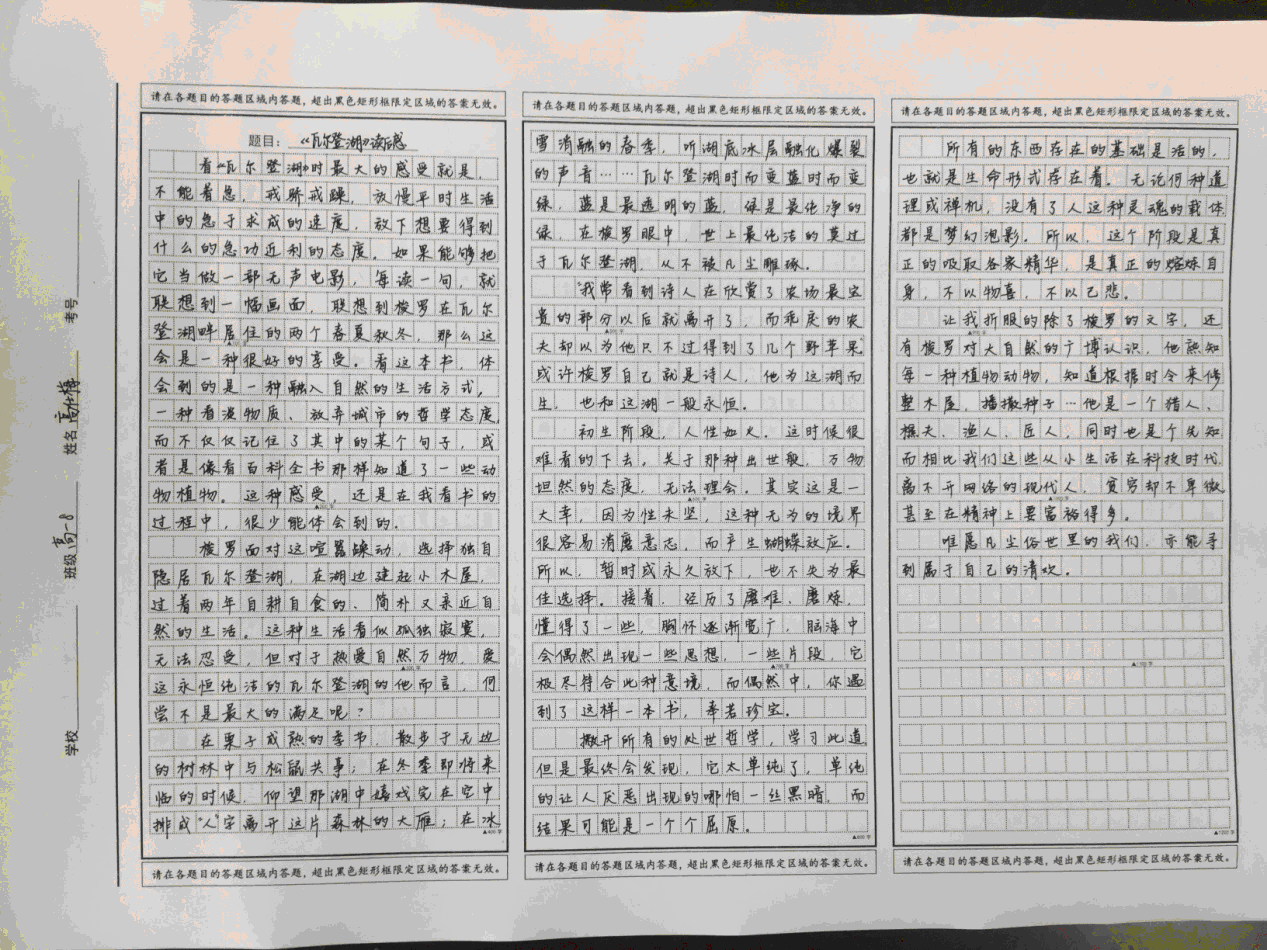 学校
班级 高一8
姓名
考号
请在各题目的答题区域内答题，超出黑色矩形框限定区域的答案无效。
题目：《瓦尔登湖》读后感
看《瓦尔登湖》时最大的感受就是，
不能着急，戒骄戒躁，放慢平时生活
中的急于求成的速度，放下想要得到
什么的急功近利的态度。如果能够把
它当做一部无声电影，每读一句，就
联想到一幅画面，联想到梭罗在瓦尔
登湖畔居住的两个春夏秋冬，那么这
会是一种很好的享受。看这本书，体
会到的是一种融入自然的生活方式，
一种看淡物质、放弃城市的哲学态度，
而不仅仅记住了其中的某个句子，或
者是像看百科全书那样知道了一些动
物植物。这种感受，还是在我看书的
过程中，很少能体会到的。
梭罗面对这喧嚣躁动，选择独自
隐居瓦尔登湖，在湖边建起小木屋，
过着两年自耕自食的、简朴又亲近自
然的生活。这种生活看似孤独寂寞，
无法忍受，但对于热爱自然万物，爱
这永恒纯洁的瓦尔登湖的他而言，何
尝不是最大的满足呢？
在栗子成熟的季节，散步于无边
的树林中与松鼠共事；在冬季即将来
临的时候，仰望那湖中嬉戏完在空中
排成“人”字离开这片森林的大雁；在冰
▲400字
请在各题目的答题区域内答题，超出黑色矩形框限定区域的答案无效。
请在各题目的答题区域内答题，超出黑色矩形框限定区域的答案无效。
雪消融的春季，听湖底冰层融化爆裂
的声音……瓦尔登湖时而变蓝时而变
绿，蓝是最透明的蓝，绿是最纯净的
绿，在梭罗眼中，世上最纯洁的莫过
于瓦尔登湖，从不被凡尘雕琢。
“我常看到诗人在欣赏了农场最宝
贵的部分以后就离开了，而乖戾的农
夫却以为他只不过得到了几个野苹果”
或许梭罗自己就是诗人，他为这湖而
生，也和这湖一般永恒。
初生阶段，人性如火。这时候很
难看的下去。关于那种出世般，万物
坦然的态度，无法理会。其实这是一
大幸，因为性未坚，这种无为的境界
很容易消磨意志，而产生蝴蝶效应。
所以，暂时或永久放下，也不失为最
佳选择。接着，经历了磨难，磨炼，
懂得了一些，胸怀逐渐宽广，脑海中
会偶然出现一些思想，一些片段，它
极尽符合此种意境，而偶然中，你遇
到了这样一本书，奉若珍宝。
撇开所有的处世哲学，学习此道，
但是最终会发现，它太单纯了，单纯
的让人厌恶出现的哪怕一丝黑暗，而
结果可能是一个个屈原。
▲800字
请在各题目的答题区域内答题，超出黑色矩形框限定区域的答案无效。
请在各题目的答题区域内答题，超出黑色矩形框限定区域的答案无效。
所有的东西存在的基础是活的，
也就是生命形式存在着。无论何种道
理或禅机，没有了人这种灵魂的载体，
都是梦幻泡影。所以，这个阶段是真
正的吸取各家精华，是真正的熔炼自
身，不以物喜，不以己悲。
让我折服的除了梭罗的文字，还
有梭罗对大自然的广博认识，他熟知
每一种植物动物，知道根据时令来修
整木屋，播撒种子…他是一个猎人、
樵夫、渔人、匠人，同时也是个先知
而相比我们这些从小生活在科技时代，
离不开网络的现代人，贫穷却不卑微，
甚至在精神上要富裕得多。
唯愿凡尘俗世里的我们，亦能寻
到属于自己的清欢。
▲1200字
请在各题目的答题区域内答题，超出黑色矩形框限定区域的答案无效。